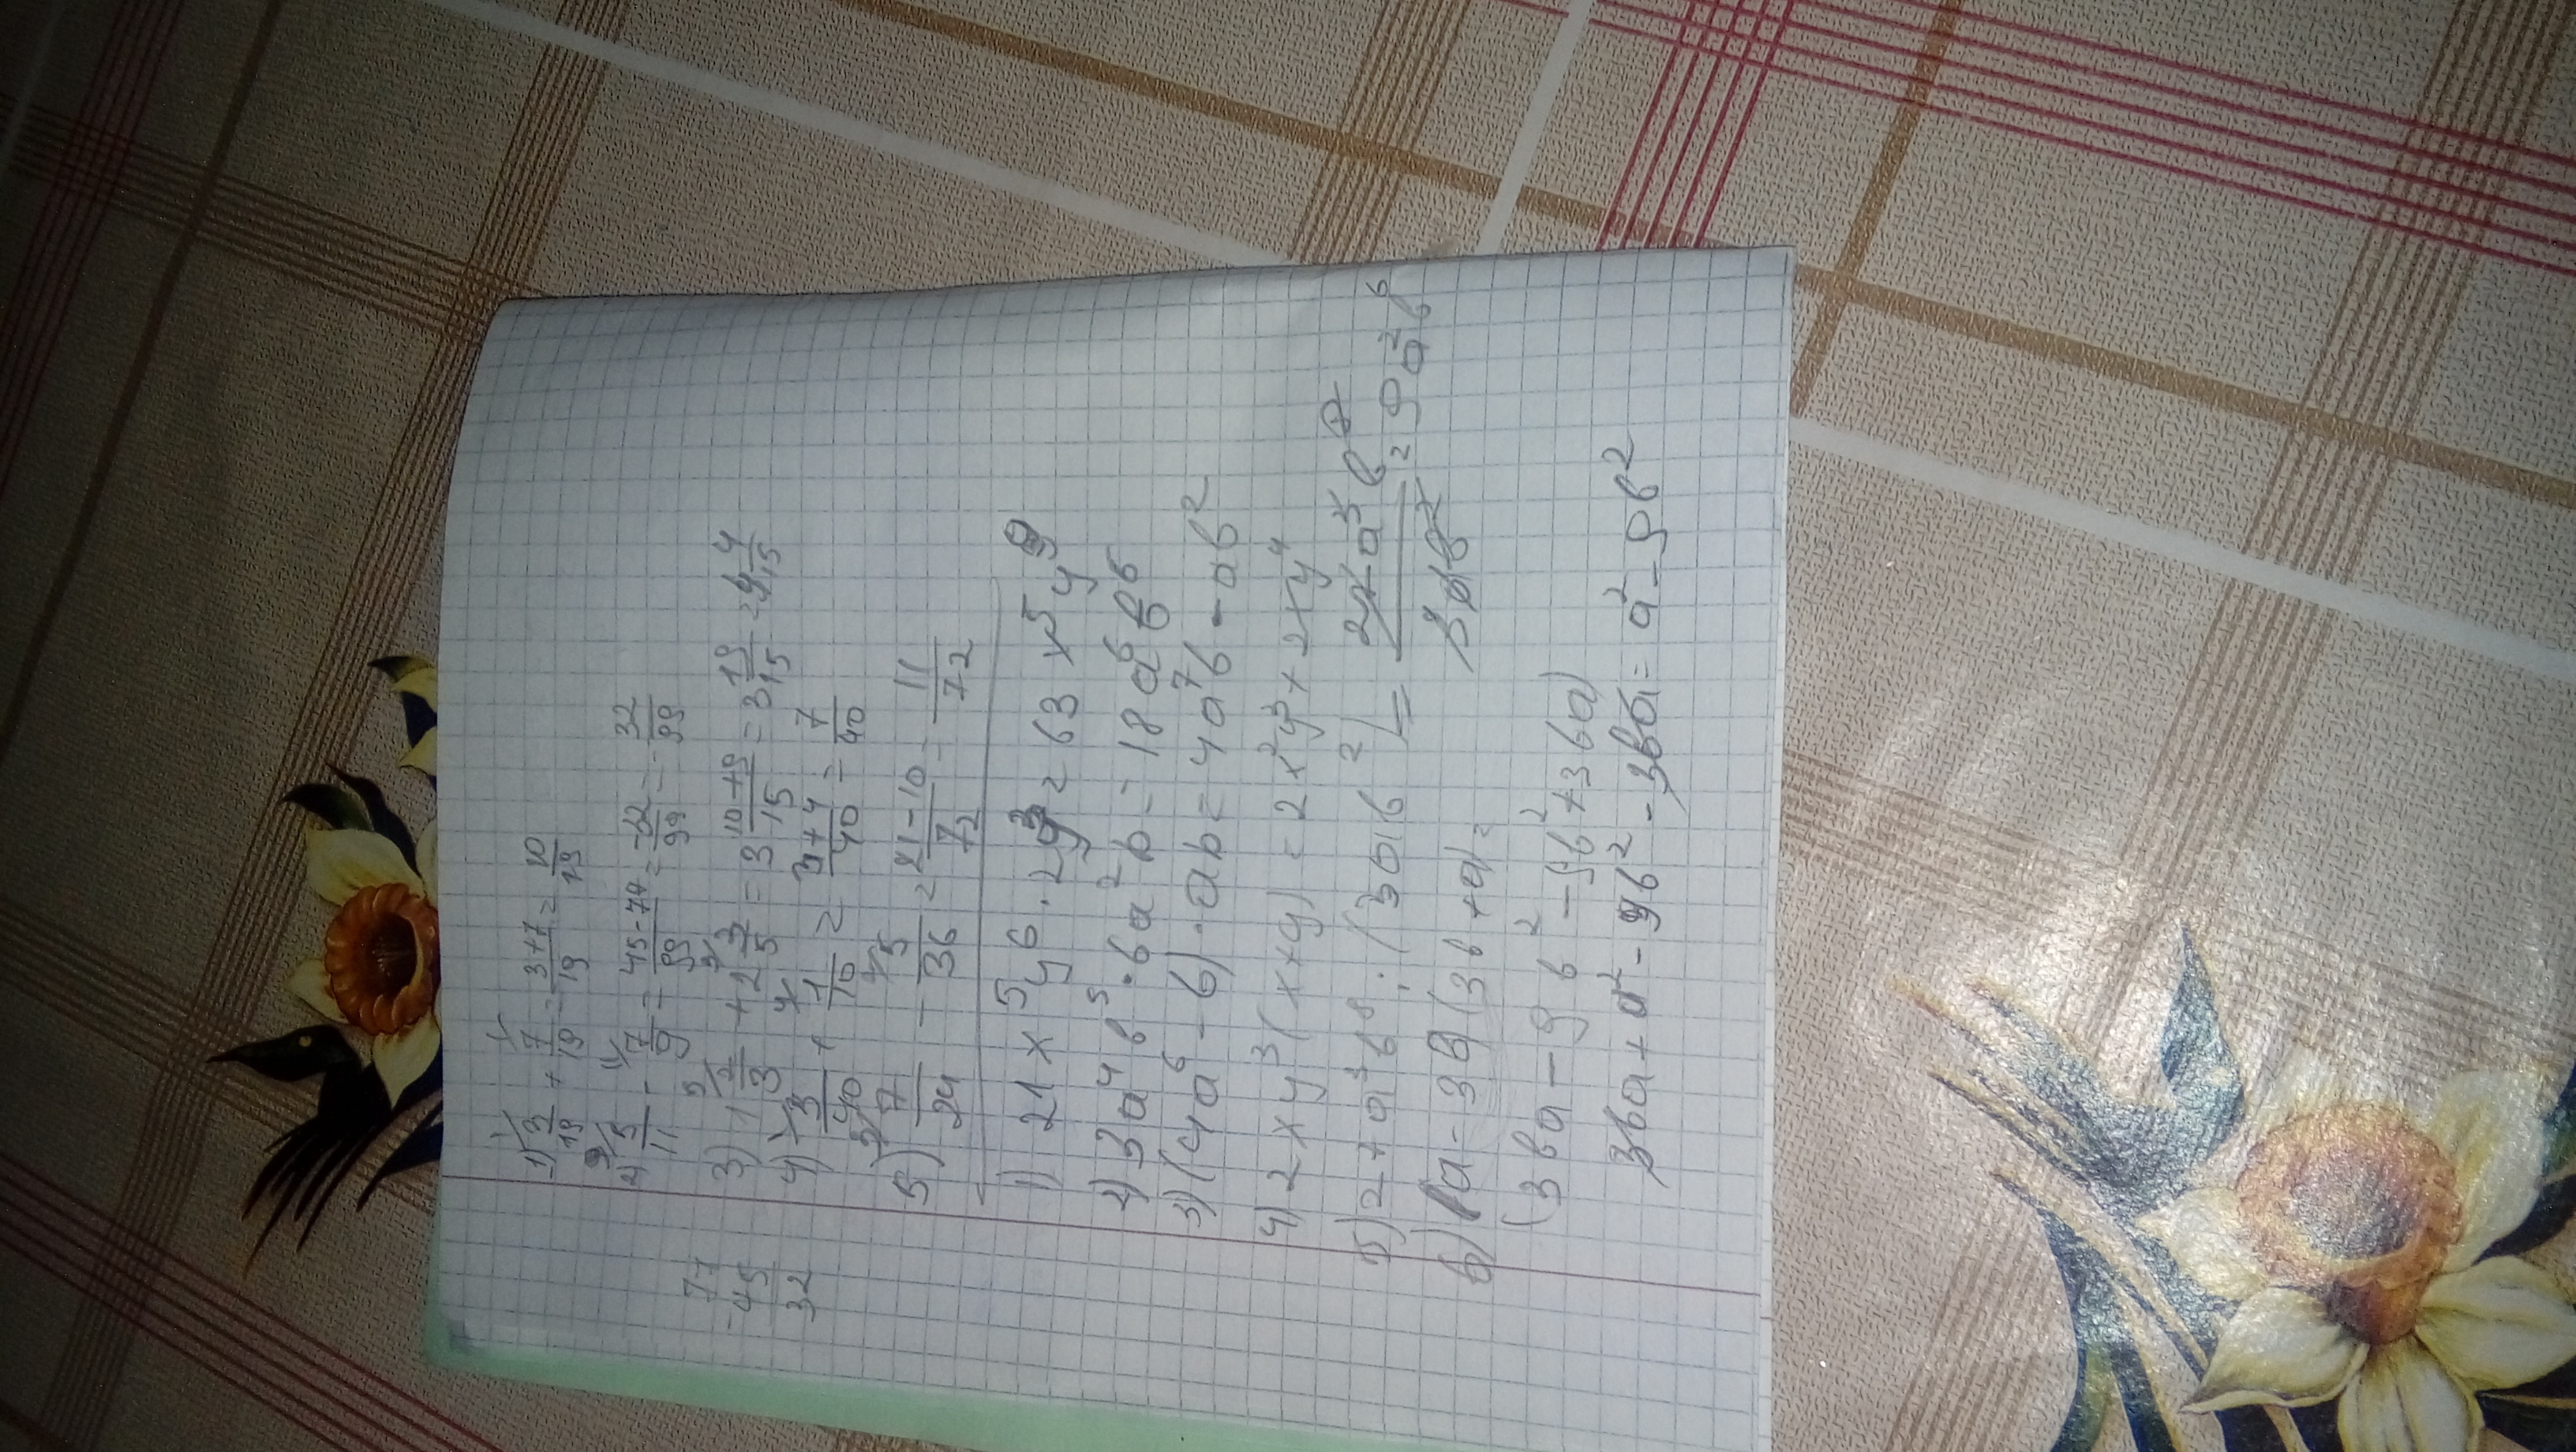 1) 3/19 + 7/19 = 3+7/19 = 10/19
2) 5/11 - 7/9 = 45-77/99 = -32/99 = -32/99
77
-45
32
3) 1 2/3 + 2 3/5 = 3 10+9/15 = 3 19/15 = 4 4/15
4) 3/40 + 1/10 = 3+4/40 = 7/40
5) 7/24 - 5/36 = 21-10/72 = 11/72
1) 21x⁵y⁶ · 2y³ = 63x⁵y⁹
2) 3a⁴b⁵ · 6a²b = 18a⁶b⁶
3) (4a⁶ - b) · ab = 4a⁷b - ab²
4) 2xy³(x+y) = 2x²y³ + 2xy⁴
5) 27a³b⁸ : (3ab²) = 27a³b⁸/3ab² = 9a²b⁶
6) (a - 3b)(3b + a) =
(3ba - 9b² - 9b² + 3ba)
3ba + a² - 9b² - 3ba = a² - 9b²